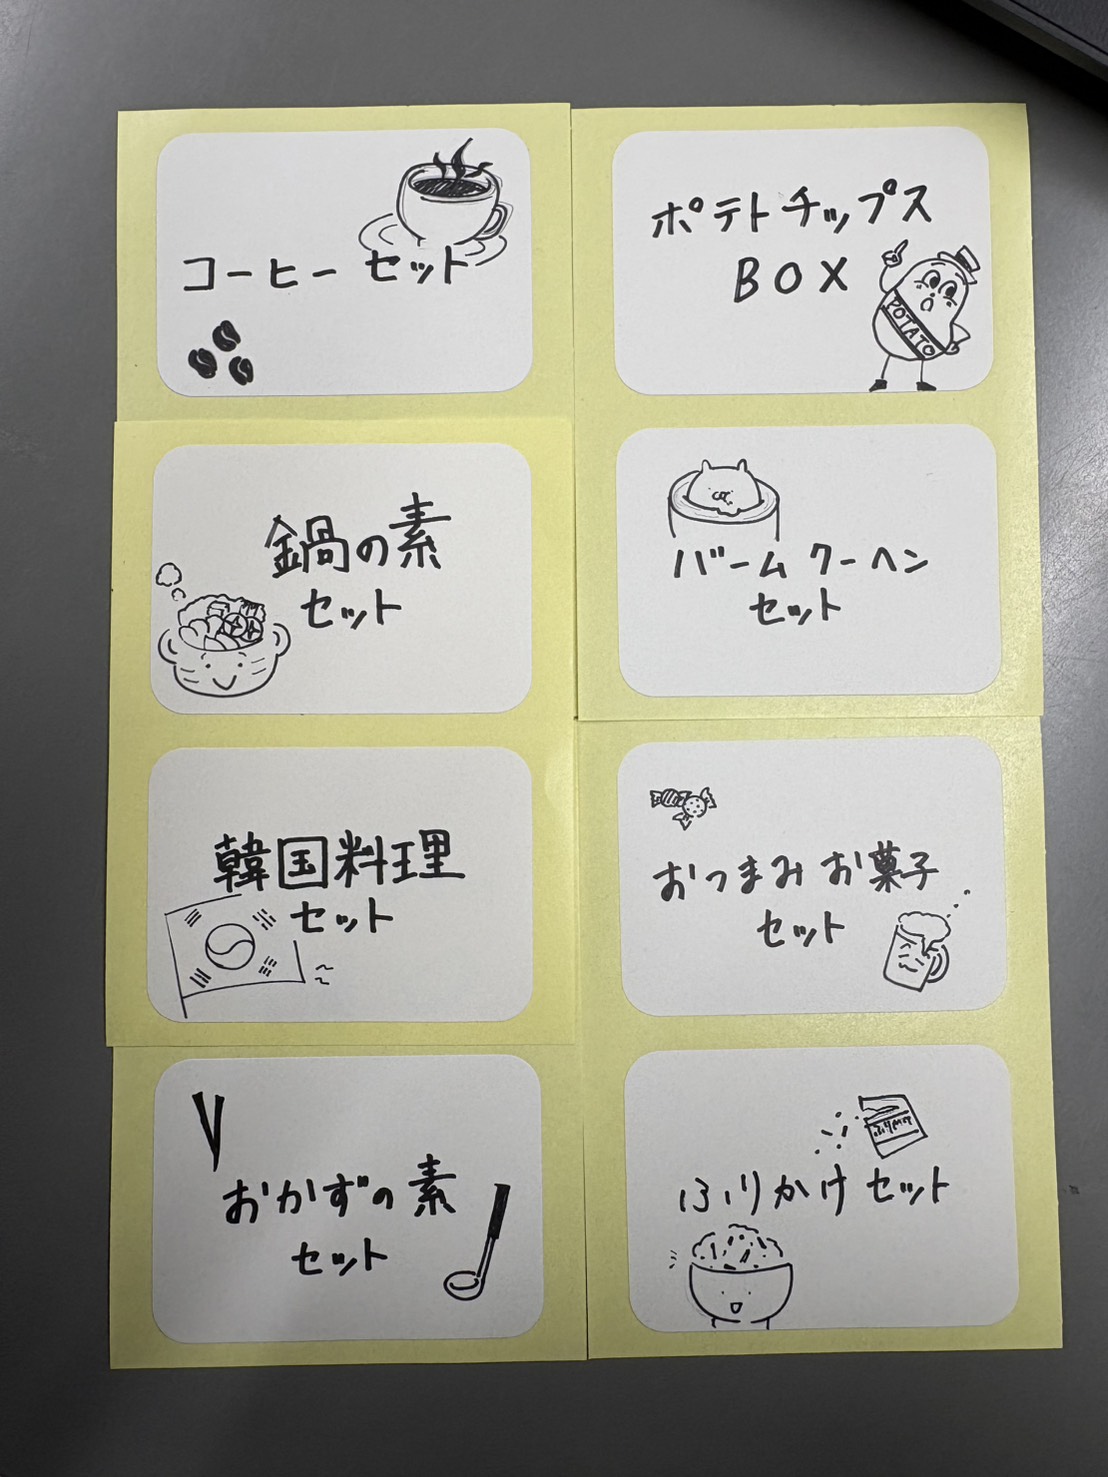 コーヒーセット
ポテトチップス
BOX
POTATO
鍋の素
セット
バームクーヘン
セット
韓国料理
セット
おつまみお菓子
セット
おかずの素
セット
ふりかけ
ふりかけセット